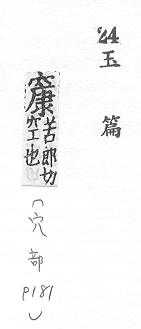 '24 玉篇
⿱穴康 苦郎切
空也
(穴部 P181)